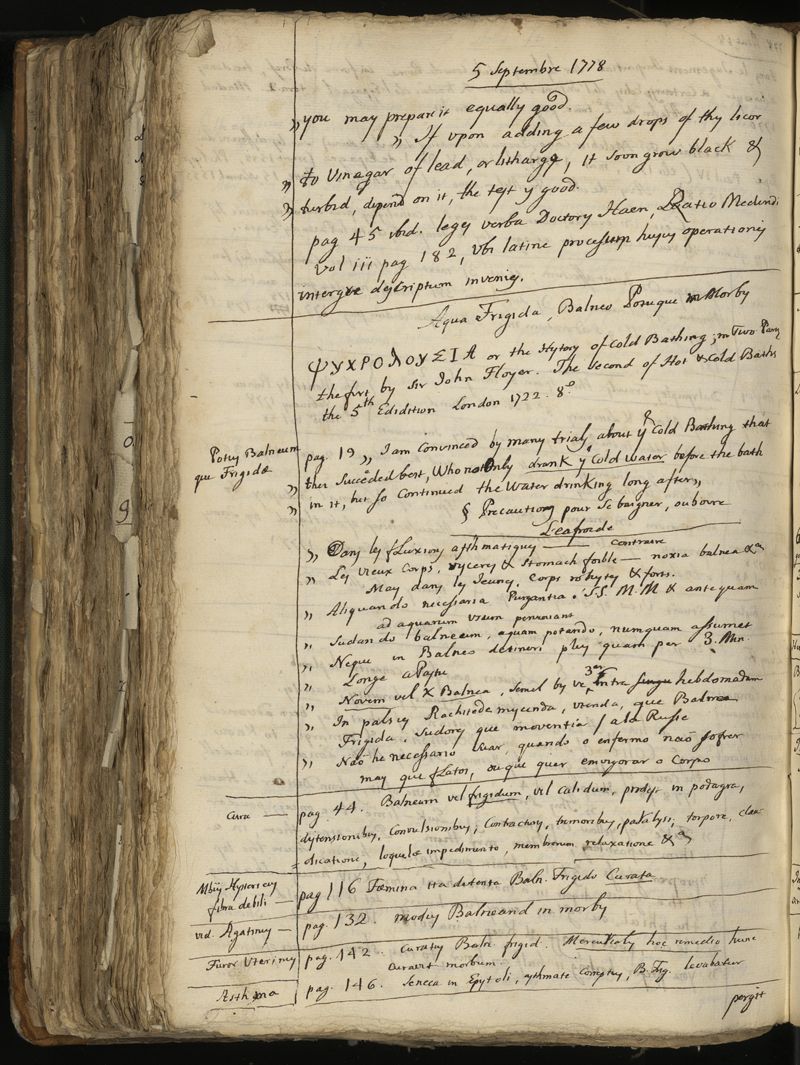 5 Septembre 1778
„ you may prepare it equally good.
„ If upon adding a few drops of thy licor
„ to Vinagar of lead, or lithargy, it soon grow black &
„ turbid, depend on it, the test y good.
pag 45 ibid. lege verba Doctory Haen, Ratio Medendi
Vol iii pag 182, Vbi latine processum hujuy operationiy
integre descriptum invenies.
Aqua Frigida, Balneo Potuque in Morby
ΨΥΧΡΟΛΟΥΣΙΑ or the Hystory of Cold Bathing; in Two Parts
the first by Sir John Floyer. The Second of Hot & Cold Baths
the 5th Edidition London 1722. 8º
Potuy Balneum
que Frigide
pag. 19 „ I am Convinced by many trialy about y Cold Bathing that
„ they Succeded best, Who not Only drank y Cold water before the bath
„ in it, but so Continued the Water drinking long after„
§ Precautiony pour Se baigner, ou boire
L'eafroide
„ Dany ley fLuxiony asthmatiquey — contraire
„ Ley vieux Corps, vycerey & Stomach foible — noxia balnea &a
May dany ley Jeuney, Corps robusty & forts.
„ Aliquando necessaria Purgantia, S.S. M.M & antequam
ad aquarum vsum perveniant
„ Sudando balneum, aquam potando, numquam assumet
„ Neque in Balneo detineri pluy quam per 3. Min.
„ Longe a Pastu
„ Novem vel X Balnea, Semel by ve 3er intra hebdomadam
„ In palsey Rachitide mycenda, vtenda, que Balnea
Frigida. Sudory que moventia / ala Rusie
„ Não he necessario Suar, quando o enfermo não Sofrer
may que fLatos, ou que quer emvigorar o Corpo
Cura — pag. 44. Balneum vel frigidum, vel calidum, prodest in podagra,
dystensionibuy, Convulsionibuy, Contractury, tremoribuy, paralysi, torpore, clau
= dicatione, loquele impedimento, membrorum relaxatione &a
Mbiy Hystericey
fibra debili — pag 116 Fœmina ita detenta Baln. Frigido Curata
vid. Agatiney — pag. 132. moduy Balneand in morby
Furor Vterinuy pag. 142. curatuy Baln. frigid. Mercurialy hoc remedio hunc
curavit morbum.
Asthma pag. 146. Seneca in Epystoli, asthmate correptuy, B. Frig. levabatur
pergit